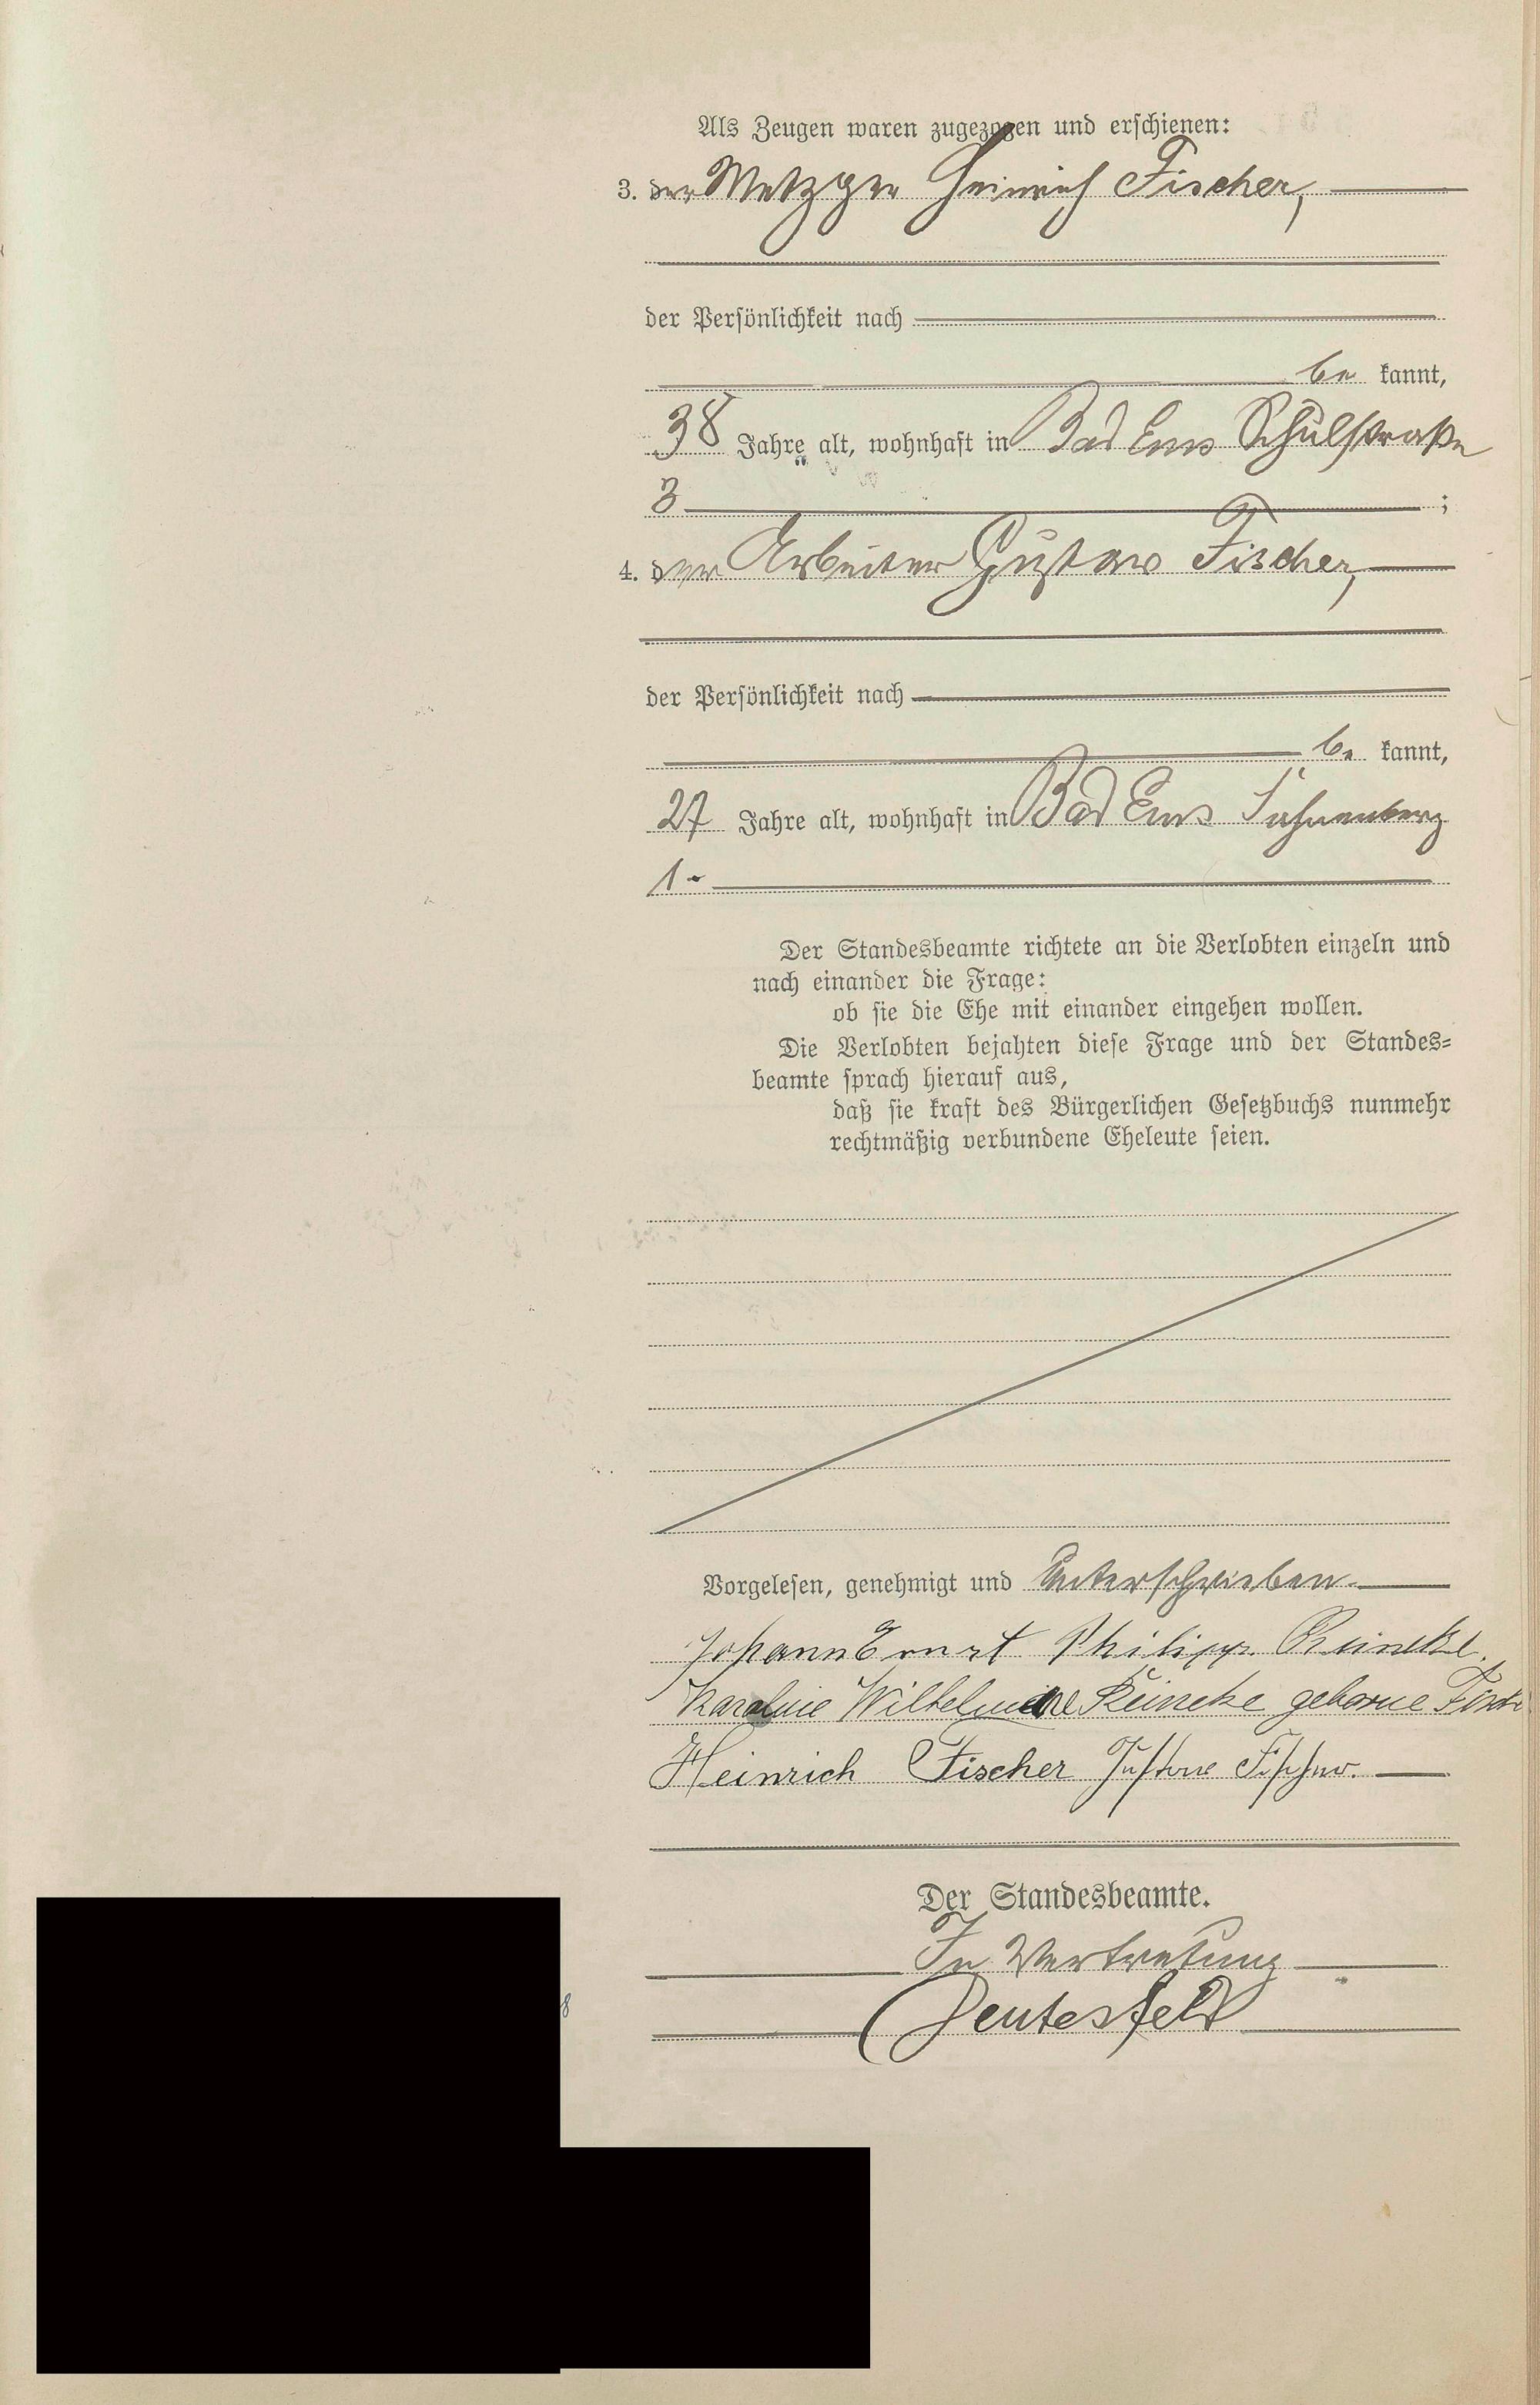 Als Zeugen waren zugezogen und erschienen:
3. der Metzger Heinrich Fischer,
der Persönlichkeit nach
be kannt,
38 Jahre alt, wohnhaft in Bad Ems Schulstraße
3 ;
4. der Arbeiter Gustav Fischer,
der Persönlichkeit nach
be kannt,
27 Jahre alt, wohnhaft in Bad Ems
1.
Der Standesbeamte richtete an die Verlobten einzeln und
nach einander die Frage:
ob sie die Ehe mit einander eingehen wollen.
Die Verlobten bejahten diese Frage und der Standes=
beamte sprach hierauf aus,
daß sie kraft des Bürgerlichen Gesetzbuchs nunmehr
rechtmäßig verbundene Eheleute seien.
Vorgelesen, genehmigt und Unterschrieben.
Johann Ernst Philipp Reineke.
Karoline Wilhelmine Reineke geborne
Heinrich Fischer Gustav Fischer.
Der Standesbeamte.
In Vertretung